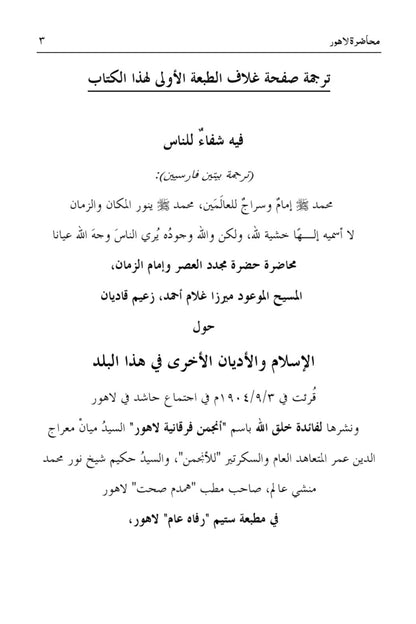 محاضرة لاهور ٣
ترجمة صفحة غلاف الطبعة الأولى لهذا الكتاب
فيه شفاءٌ للناس
(ترجمة بيتين فارسيين):
محمد ﷺ إمامٌ وسراجٌ للعالَمَين، محمد ﷺ ينور المكان والزمان
لا أسميه إلـــهًا خشية لله، ولكن والله وجودُه يُري الناسَ وجهَ الله عيانا
محاضرة حضرة مجدد العصر وإمام الزمان،
المسيح الموعود ميرزا غلام أحمد، زعيم قاديان
حول
الإسلام والأديان الأخرى في هذا البلد
قُرئت في ١٩٠٤/٩/٣م في اجتماع حاشد في لاهور
ونشرها لفائدة خلق الله باسم "أنجمن فرقانية لاهور" السيدُ ميانْ معراج
الدين عمر المتعاهد العام والسكرتير "للأنجمن"، والسيدُ حكيم شيخ نور محمد
منشي عالم، صاحب مطب "همدم صحت" لاهور
في مطبعة ستيم "رفاه عام" لاهور،